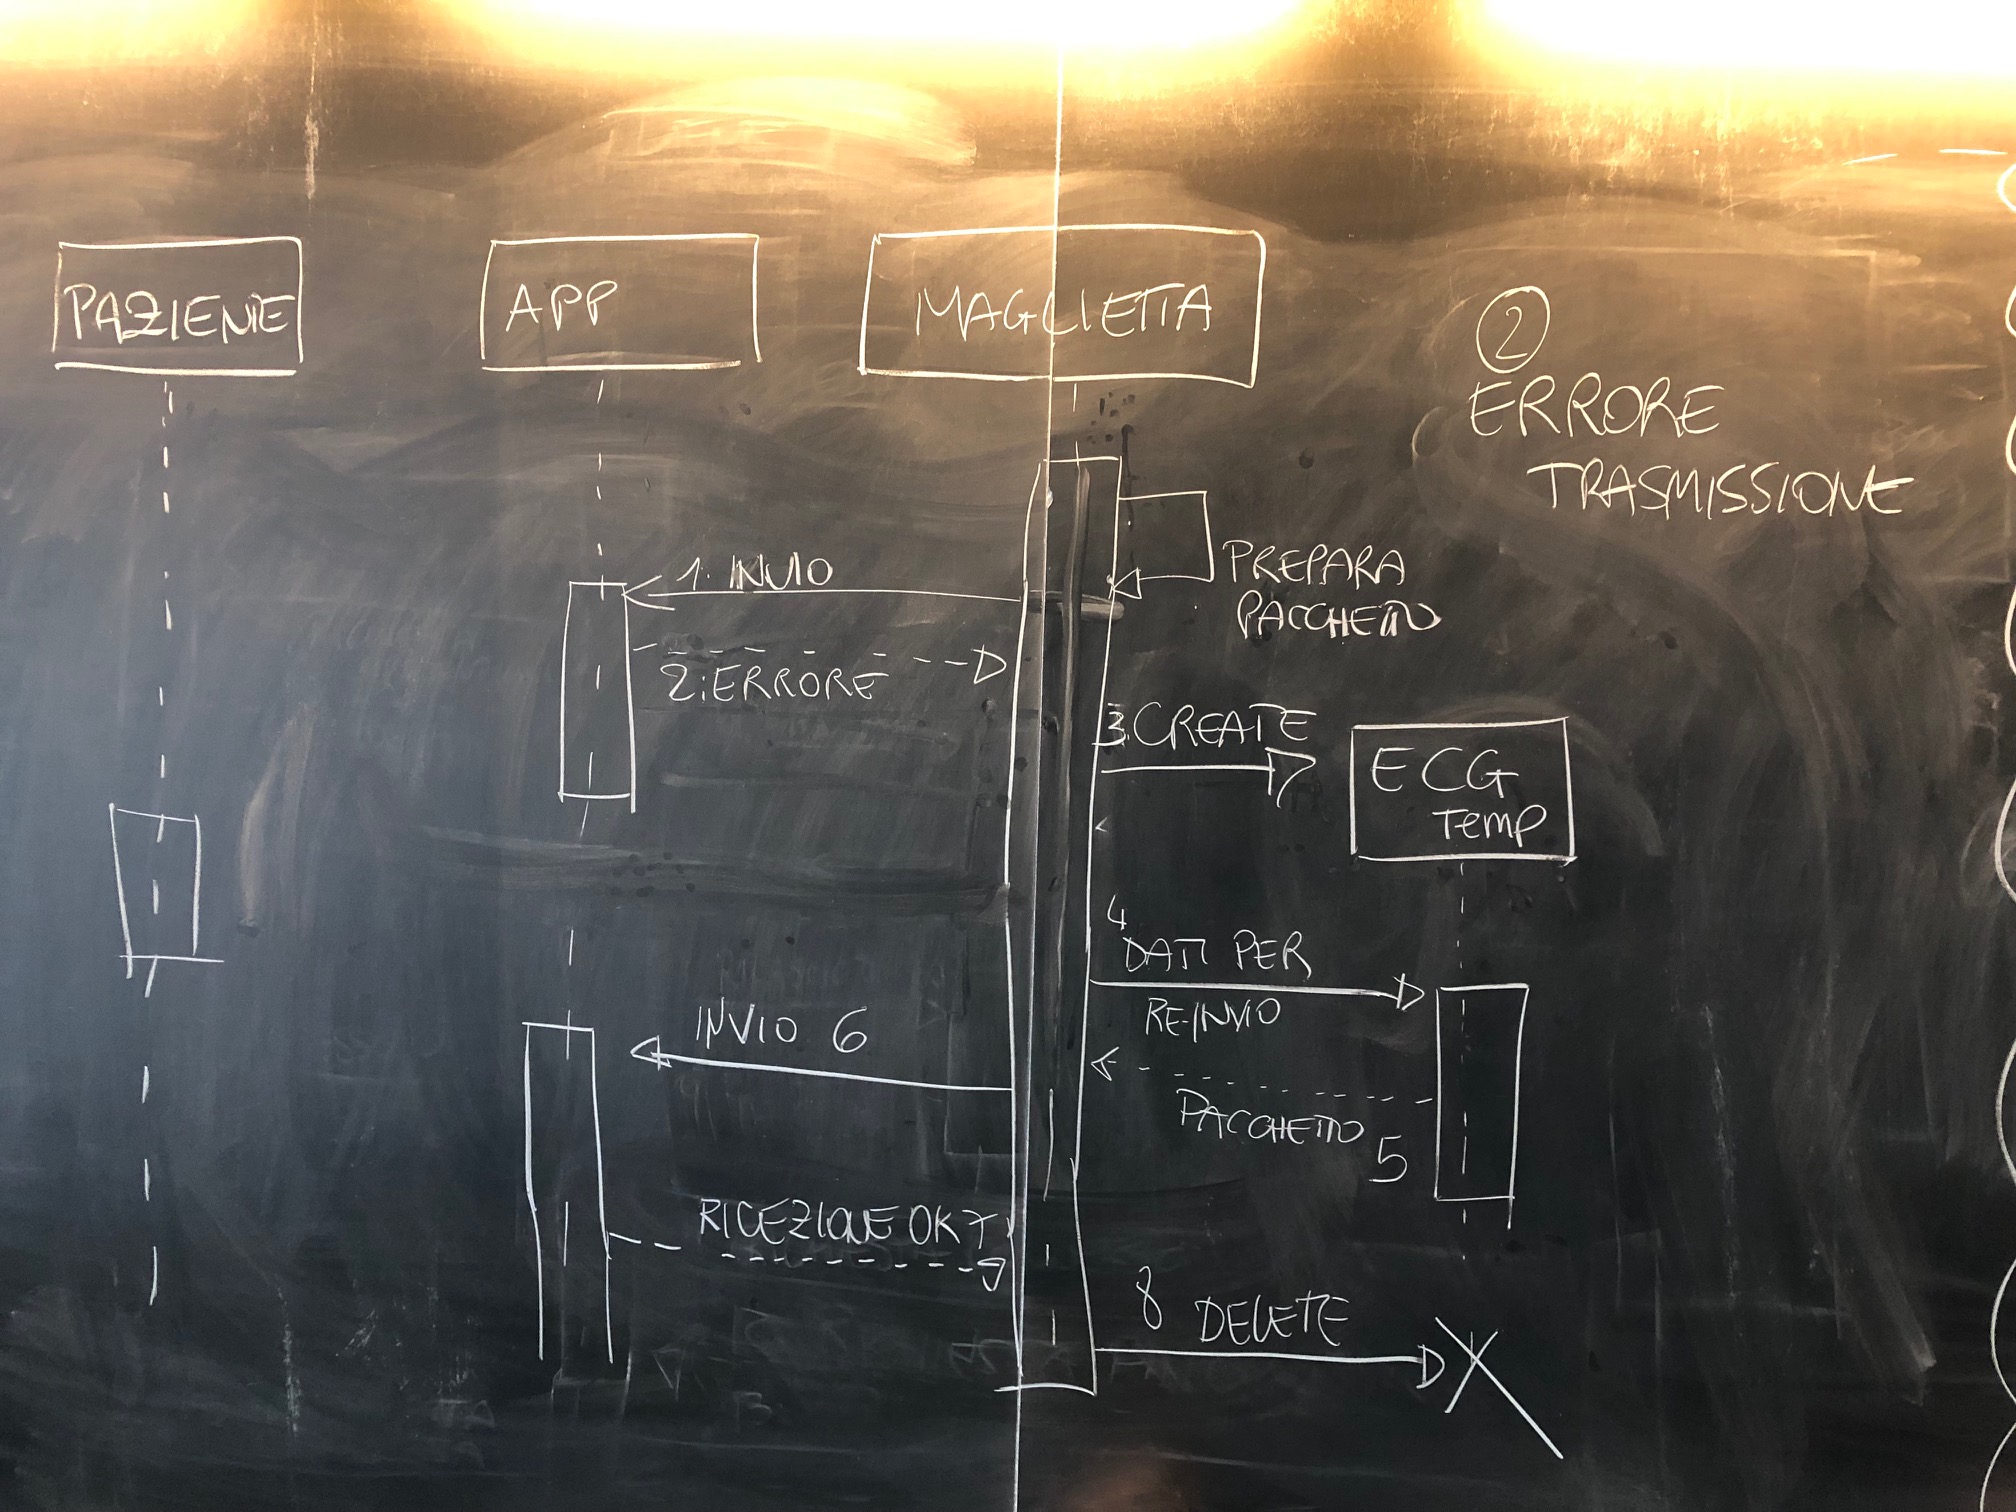 PAZIENTE
APP
MAGLIETTA
2
ERRORE
TRASMISSIONE
PREPARA
PACCHETTO
1. INVIO
2: ERRORE
3. CREATE
ECG
TEMP
4
DATI PER
RE-INVIO
INVIO 6
PACCHETTO
5
RICEZIONE OK 7
8 DELETE